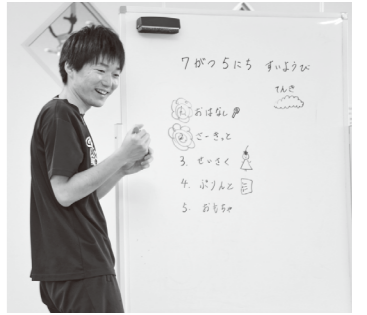 7がつ5にち すいようび
てんき
おはなし
さーきっと
3. せいさく
4. ぷりんと
5. おもちゃ